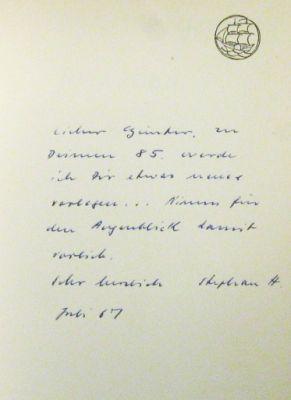 Lieber Günther, zu
Deinem 85. werde
ich Dir etwas neues
vorlegen... Nimm für
den Augenblick damit
vorlieb.
Sehr herzlich Stephan H.
Juli 67